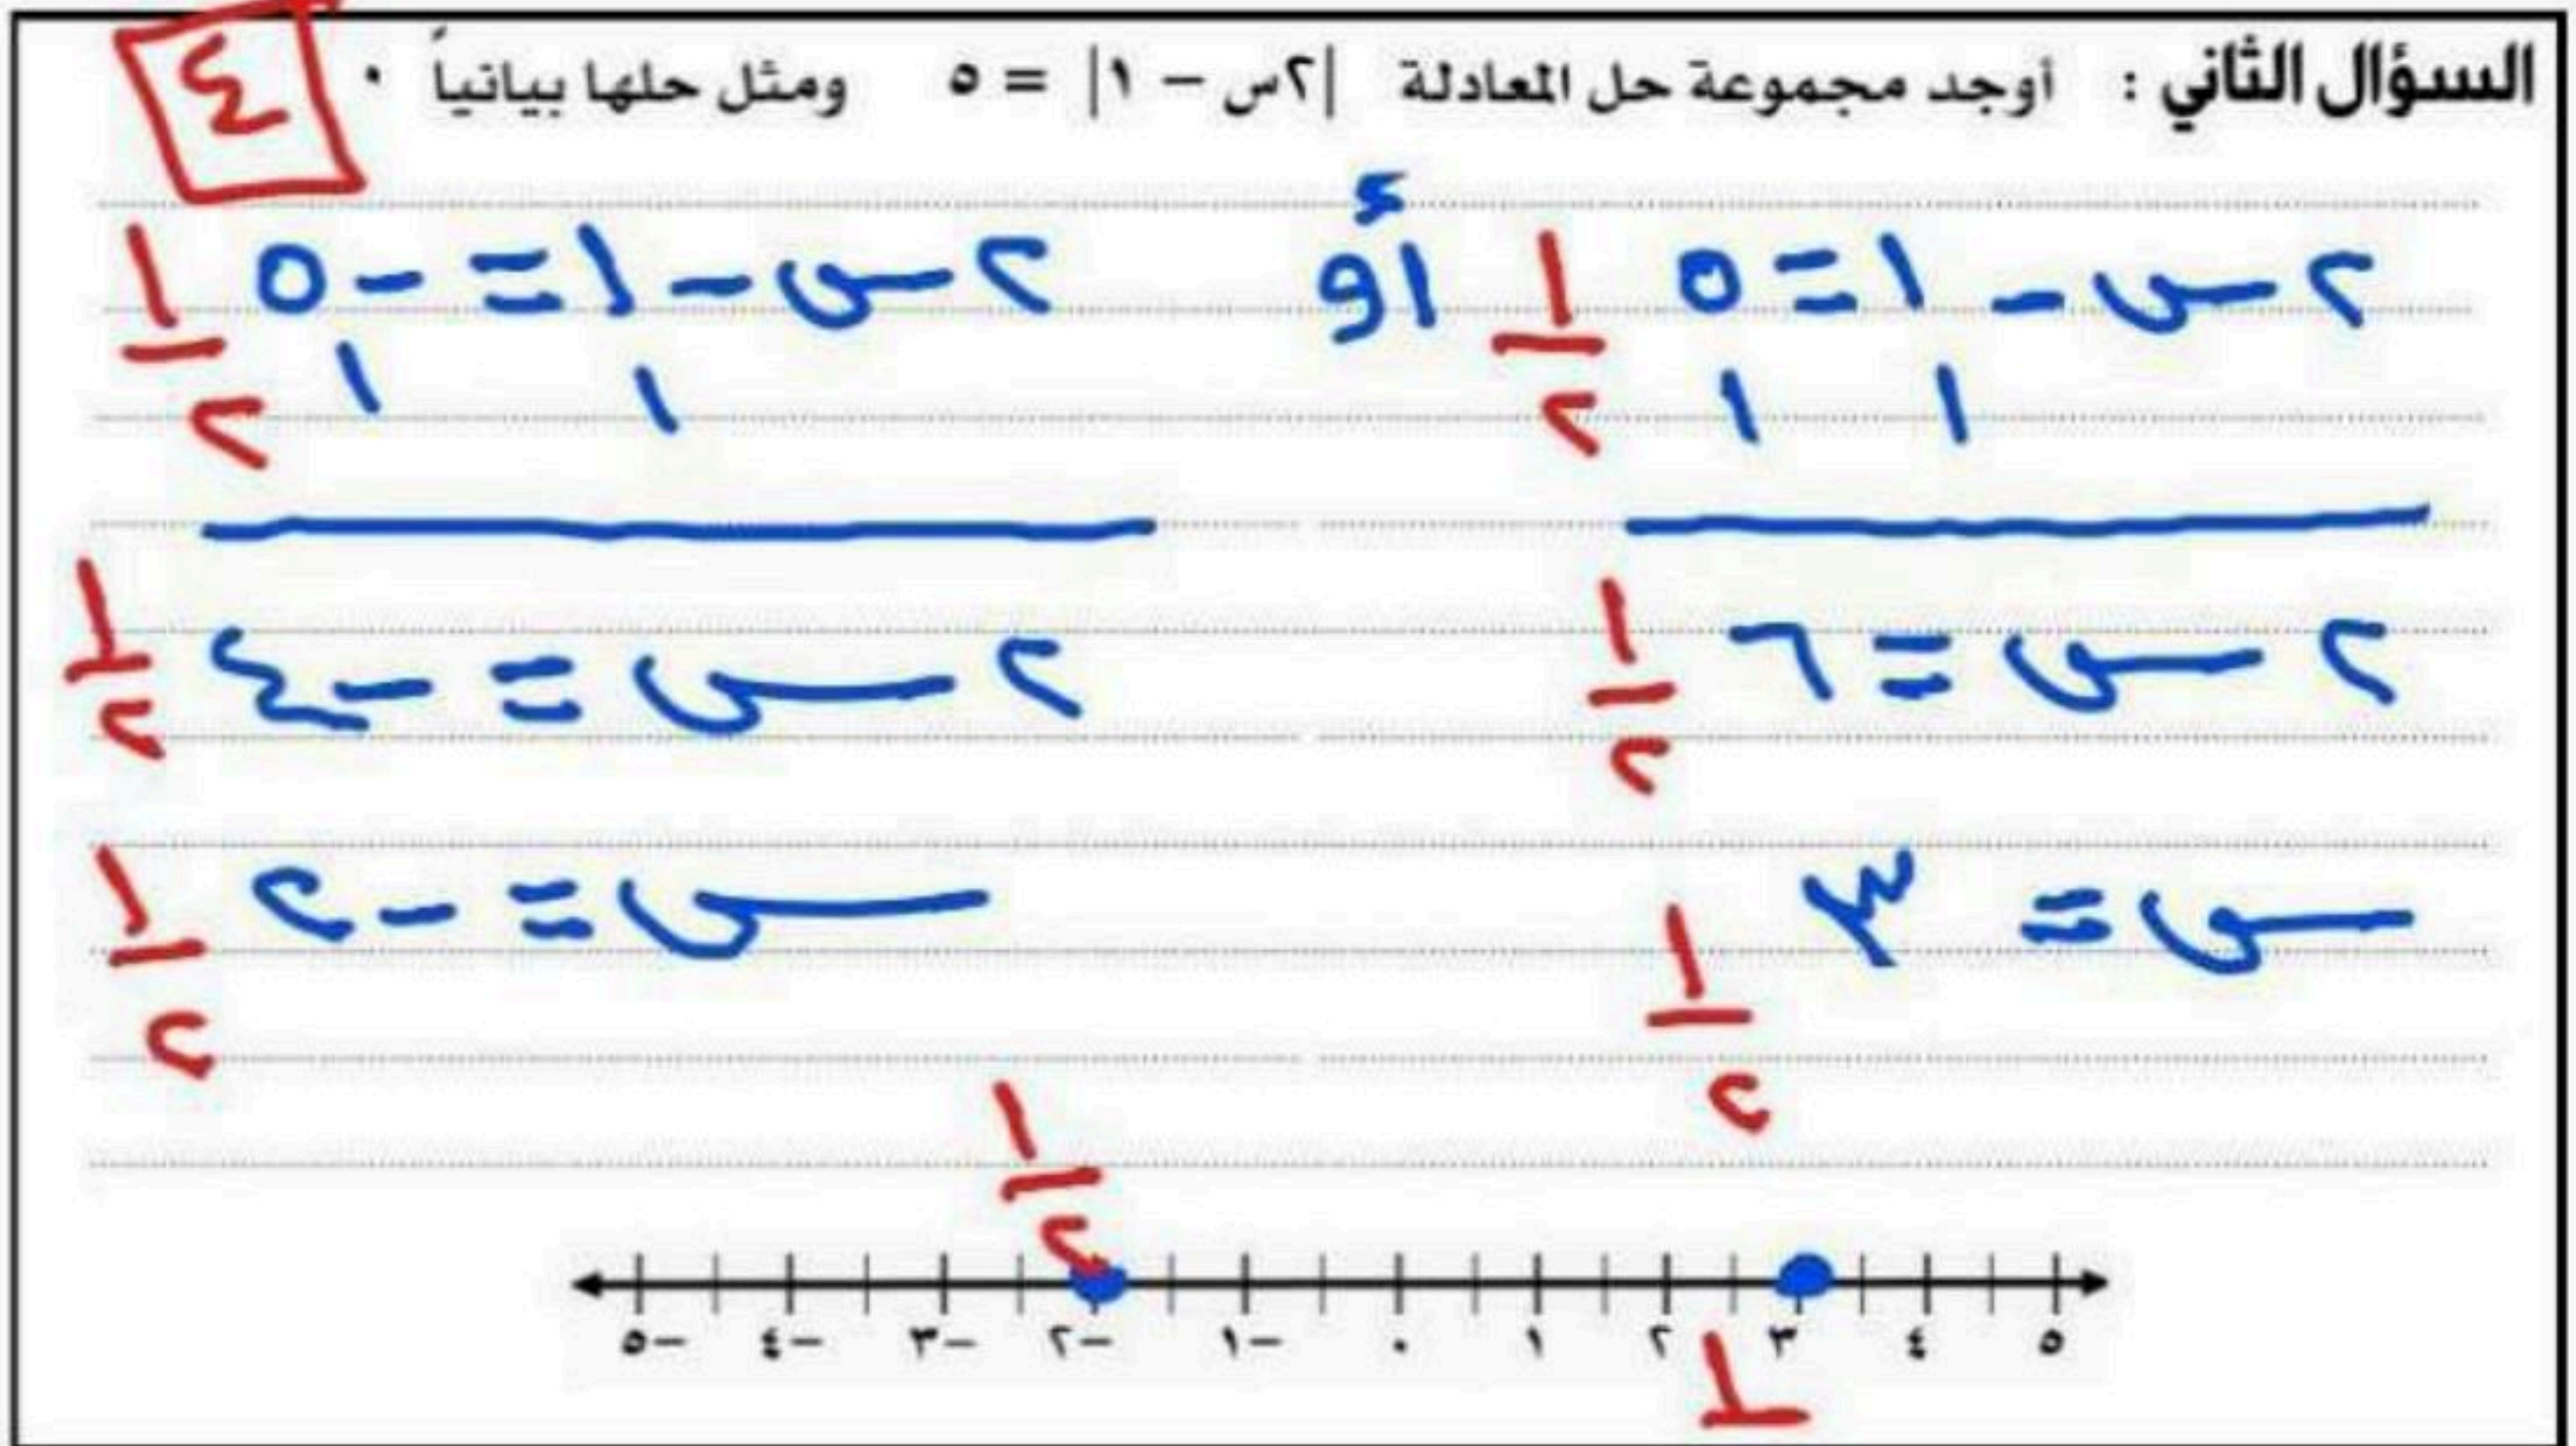 السؤال الثاني : أوجد مجموعة حل المعادلة |٢س − ١| = ٥ ومثل حلها بيانياً ٠ ٤
٢س − ١ = ٥ ١/٢ أو ٢س − ١ = −٥ ١/٢
١ ١ ١ ١
٢س = ٦ ١/٢ ٢س = −٤ ١/٢
س = ٣ ١/٢ س = −٢ ١/٢
١/٢
−٥ −٤ −٣ −٢ −١ ٠ ١ ٢ ٣ ٤ ٥